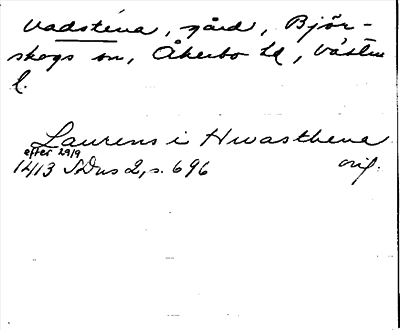 Vadstena, gård, Björ-
skogs sn, Åkerbo hd, Västm
l.
Laurens i Hwasthena
efter 29/9
1413 SDns 2, s. 696 orig.